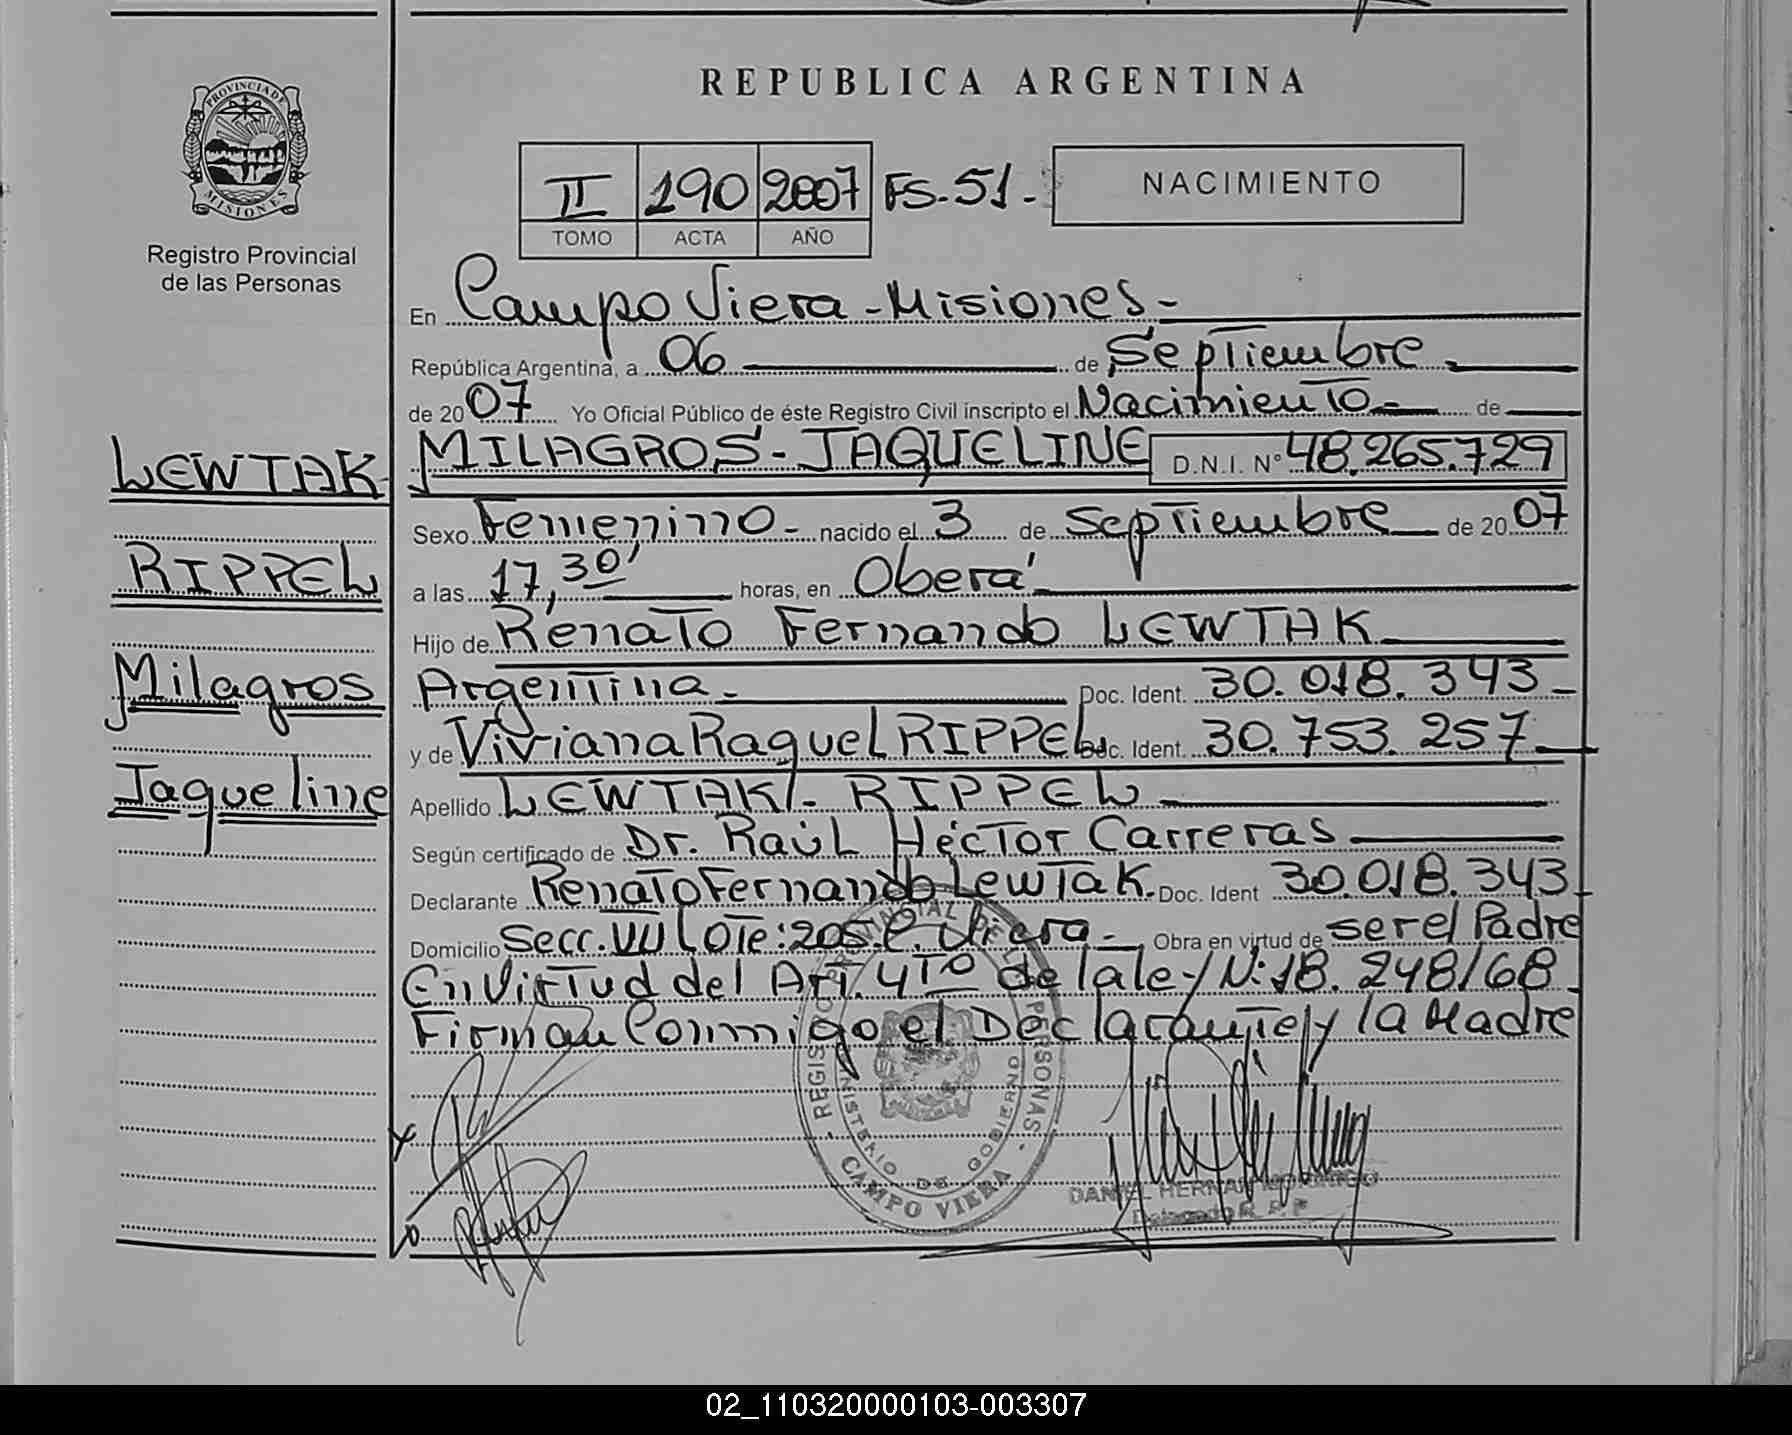 REPUBLICA ARGENTINA
PROVINCIA DE MISIONES
Registro Provincial
de las Personas
II 190 2007 FS-51.-
TOMO ACTA AÑO
NACIMIENTO
En Campo Viera - Misiones -
República Argentina, a 06 de Septiembre
de 2007 Yo Oficial Público de éste Registro Civil inscripto el Nacimiento de
MILAGROS - JAQUELINE D.N.I. N° 48.265.729
LEWTAK
RIPPEL
Milagros
Jaqueline
Sexo Femenino - nacido el 3 de Septiembre de 2007
a las 17,30' horas, en Oberá
Hijo de Renato Fernando LEWTAK
Argentina - Doc. Ident. 30.018.343 -
y de Viviana Raquel RIPPEL Doc. Ident. 30.753.257 -
Apellido LEWTAK - RIPPEL
Según certificado de Dr. Raúl Héctor Carreras
Declarante Renato Fernando Lewtak. Doc. Ident 30.018.343
Domicilio Secc. VII Lote: 205. C. Viera - Obra en virtud de ser el Padre
En Virtud del Art. 4to de la ley N: 18.248/68
Firman Conmigo el Declarante y la Madre
REGISTRO PROVINCIAL DE LAS PERSONAS
MINISTERIO DE GOBIERNO
CAMPO VIERA
DANIEL
Delegado R. P. P
02_110320000103-003307